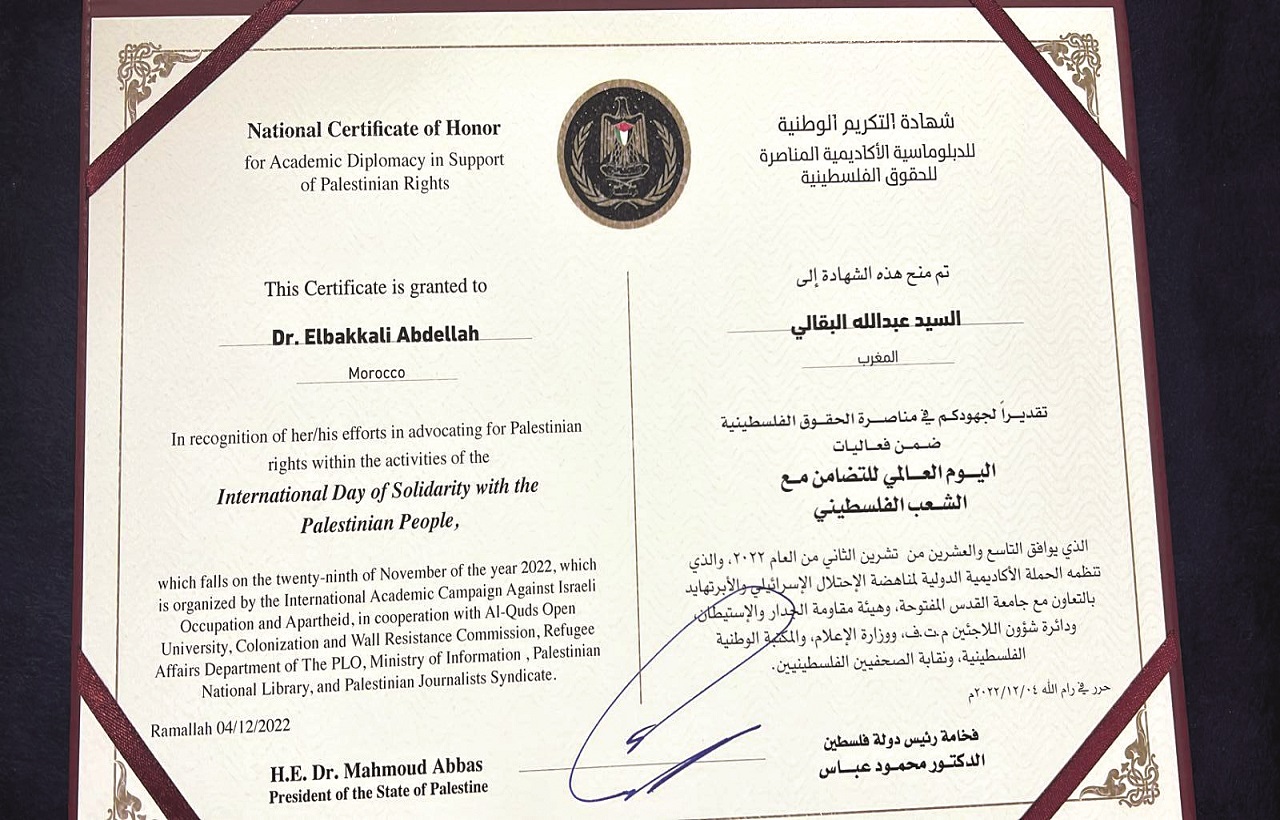 National Certificate of Honor
for Academic Diplomacy in Support
of Palestinian Rights
This Certificate is granted to
Dr. Elbakkali Abdellah
Morocco
In recognition of her/his efforts in advocating for Palestinian
rights within the activities of the
International Day of Solidarity with the
Palestinian People,
which falls on the twenty-ninth of November of the year 2022, which
is organized by the International Academic Campaign Against Israeli
Occupation and Apartheid, in cooperation with Al-Quds Open
University, Colonization and Wall Resistance Commission, Refugee
Affairs Department of The PLO, Ministry of Information , Palestinian
National Library, and Palestinian Journalists Syndicate.
Ramallah 04/12/2022
H.E. Dr. Mahmoud Abbas
President of the State of Palestine
شهادة التكريم الوطنية
للدبلوماسية الأكاديمية المناصرة
للحقوق الفلسطينية
تم منح هذه الشهادة إلى
السيد عبدالله البقالي
المغرب
تقديراً لجهودكم في مناصرة الحقوق الفلسطينية
ضمن فعاليات
اليوم العالمي للتضامن مع
الشعب الفلسطيني
الذي يوافق التاسع والعشرين من تشرين الثاني من العام ٢٠٢٢، والذي
تنظمه الحملة الأكاديمية الدولية لمناهضة الإحتلال الإسرائيلي والأبرتهايد
بالتعاون مع جامعة القدس المفتوحة، وهيئة مقاومة الجدار والإستيطان،
ودائرة شؤون اللاجئين م.ت.ف، ووزارة الإعلام، والمكتبة الوطنية
الفلسطينية، ونقابة الصحفيين الفلسطينيين.
حرر في رام الله ٢٠٢٢/١٢/٠٤م
فخامة رئيس دولة فلسطين
الدكتور محمود عباس